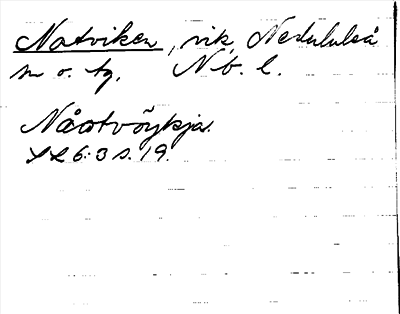 Notviken, vik, Nederluleå
sn o. tg. Nb. l.
Nåotvöykja.
SL 6:3 s. 19.